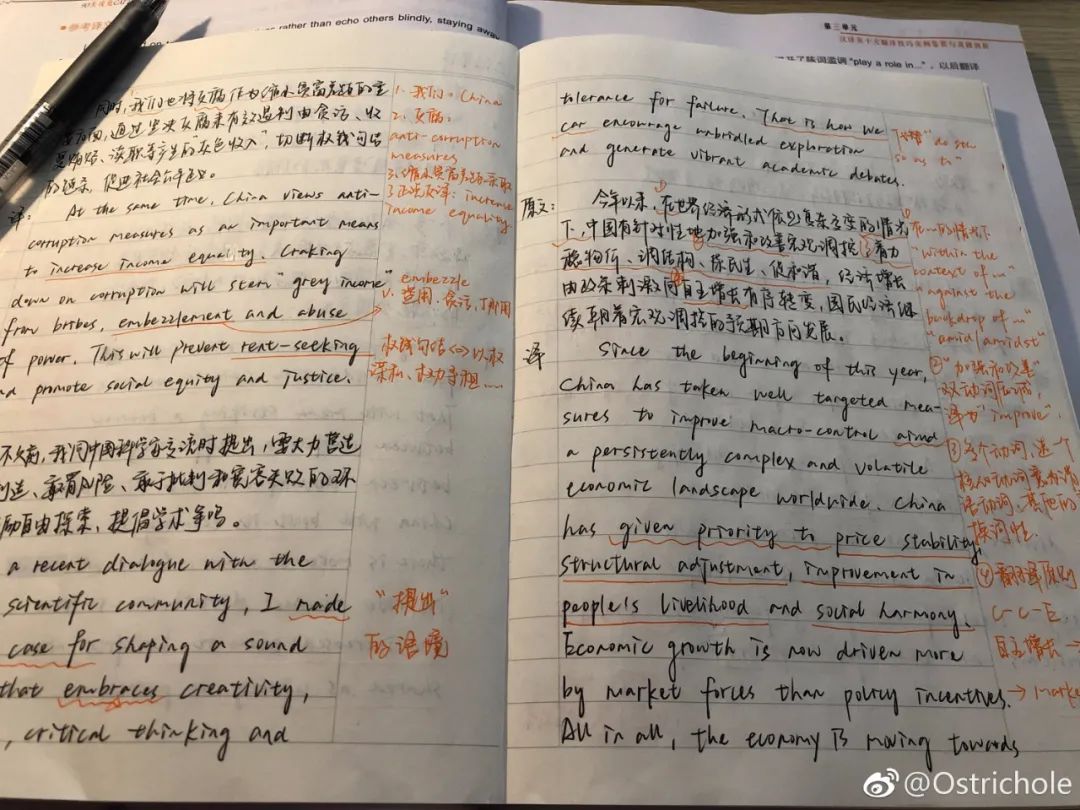 ●参考译文
rather than echo others blindly, staying away
第三单元
汉译英十大翻译技巧实例鉴赏与灵猫剖析
陈词滥调“play a role in...”，以后翻译
同时,我们也将反腐作为缩小贫富差距的重
要方面,通过坚决反腐来有效遏制由贪污、收
受贿赂、谋取等产生的“灰色收入”,切断权钱勾结
的链条,促进社会公平正义。
1. 我们:China
2. 反腐:
anti-corruption
measures
3.缩小贫富差距,采取
正说反译:increase
income equality.
译:
At the same time, China views anti-
corruption measures as an important means
to increase income equality. Craking
down on corruption will stem "grey income"
from bribes, embezzlement and abuse
of power. This will prevent rent-seeking
and promote social equity and justice.
embezzle
v. 盗用、贪污、挪用
权钱勾结<=>以权
谋私、权力寻租......
不久前,我同中国科学家交流时提出,需大力营造
创造、敢冒风险、敢于批判和宽容失败的环
励自由探索,提倡学术争鸣。
a recent dialogue with the
scientific community, I made
case for shaping a sound
that embraces creativity,
, critical thinking and
“提出”
的语境
tolerance for failure. That is how we
can encourage unbridled exploration
and generate vibrant academic debates.
do sth
so as to"
原文:
今年以来,在世界经济形式依旧复杂多变的情况
下,中国有针对性地加强和改善宏观调控,着力
稳物价、调结构、保民生、促和谐,经济增长
由政策刺激向自主增长有序转变,国民经济继
续朝着宏观调控的预期方向发展。
①
在...的情况下
"within the
context of ..."
"against the
backdrop of ..."
"amid amidst"
②“加强和改善”
双动词同时,
译为“improve”.
③多个动词,选一个
核心动词变为谓
语动词,其他的
换词性.
④翻译原则
C-C-E
自主增长→
→ marke
译
Since the beginning of this year,
China has taken well targeted mea-
sures to improve macro-control amid
a persistently complex and volatile
economic landscape worldwide. China
has given priority to price stability,
structural adjustment, improvement in
people's livelihood and social harmony.
Economic growth is now driven more
by market forces than policy incentives.
All in all, the economy is moving towards
@Ostrichole